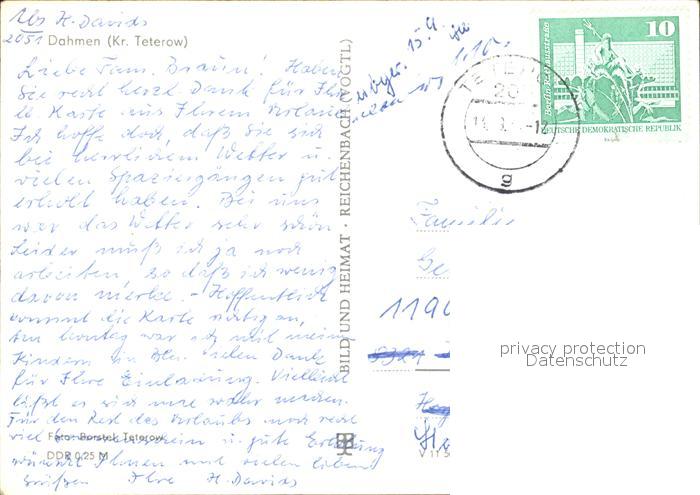 Abs H. Davids
2051 Dahmen (Kr. Teterow)
Liebe Fam. Braun! Haben
Sie recht herzl Dank für Ihre
lb Karte aus Ihrem Urlaub
Ich hoffe doch, daß Sie sich
bei herrlichem Wetter u.
vielen Spaziergängen gut
erholt haben. Bei uns
war das Wetter sehr schön
Leider muß ich ja noch
arbeiten, so daß ich wenig
davon merke. - Hoffentlich
kommt die Karte richtig an,
Am Sonntag war ich mit meinen
Kindern in Bln. vielen Dank
für Ihre Einladung. Vielleicht
läßt es sich mal machen.
Für den Rest des Urlaubs noch recht
viel Sonnenschein u. gute Erholung
wünscht Ihnen mit vielen lieben
Grüßen Ihre H. Davids
Foto: Borstel, Teterow
DDR 0,25 M
BILD UND HEIMAT · REICHENBACH (VOGTL)
15.9.
1.10.
TETEROW
20
g
10
Berlin, Rathausstraße
DEUTSCHE DEMOKRATISCHE REPUBLIK
Familie
Ge
1190
V 11 5
privacy protection
Datenschutz